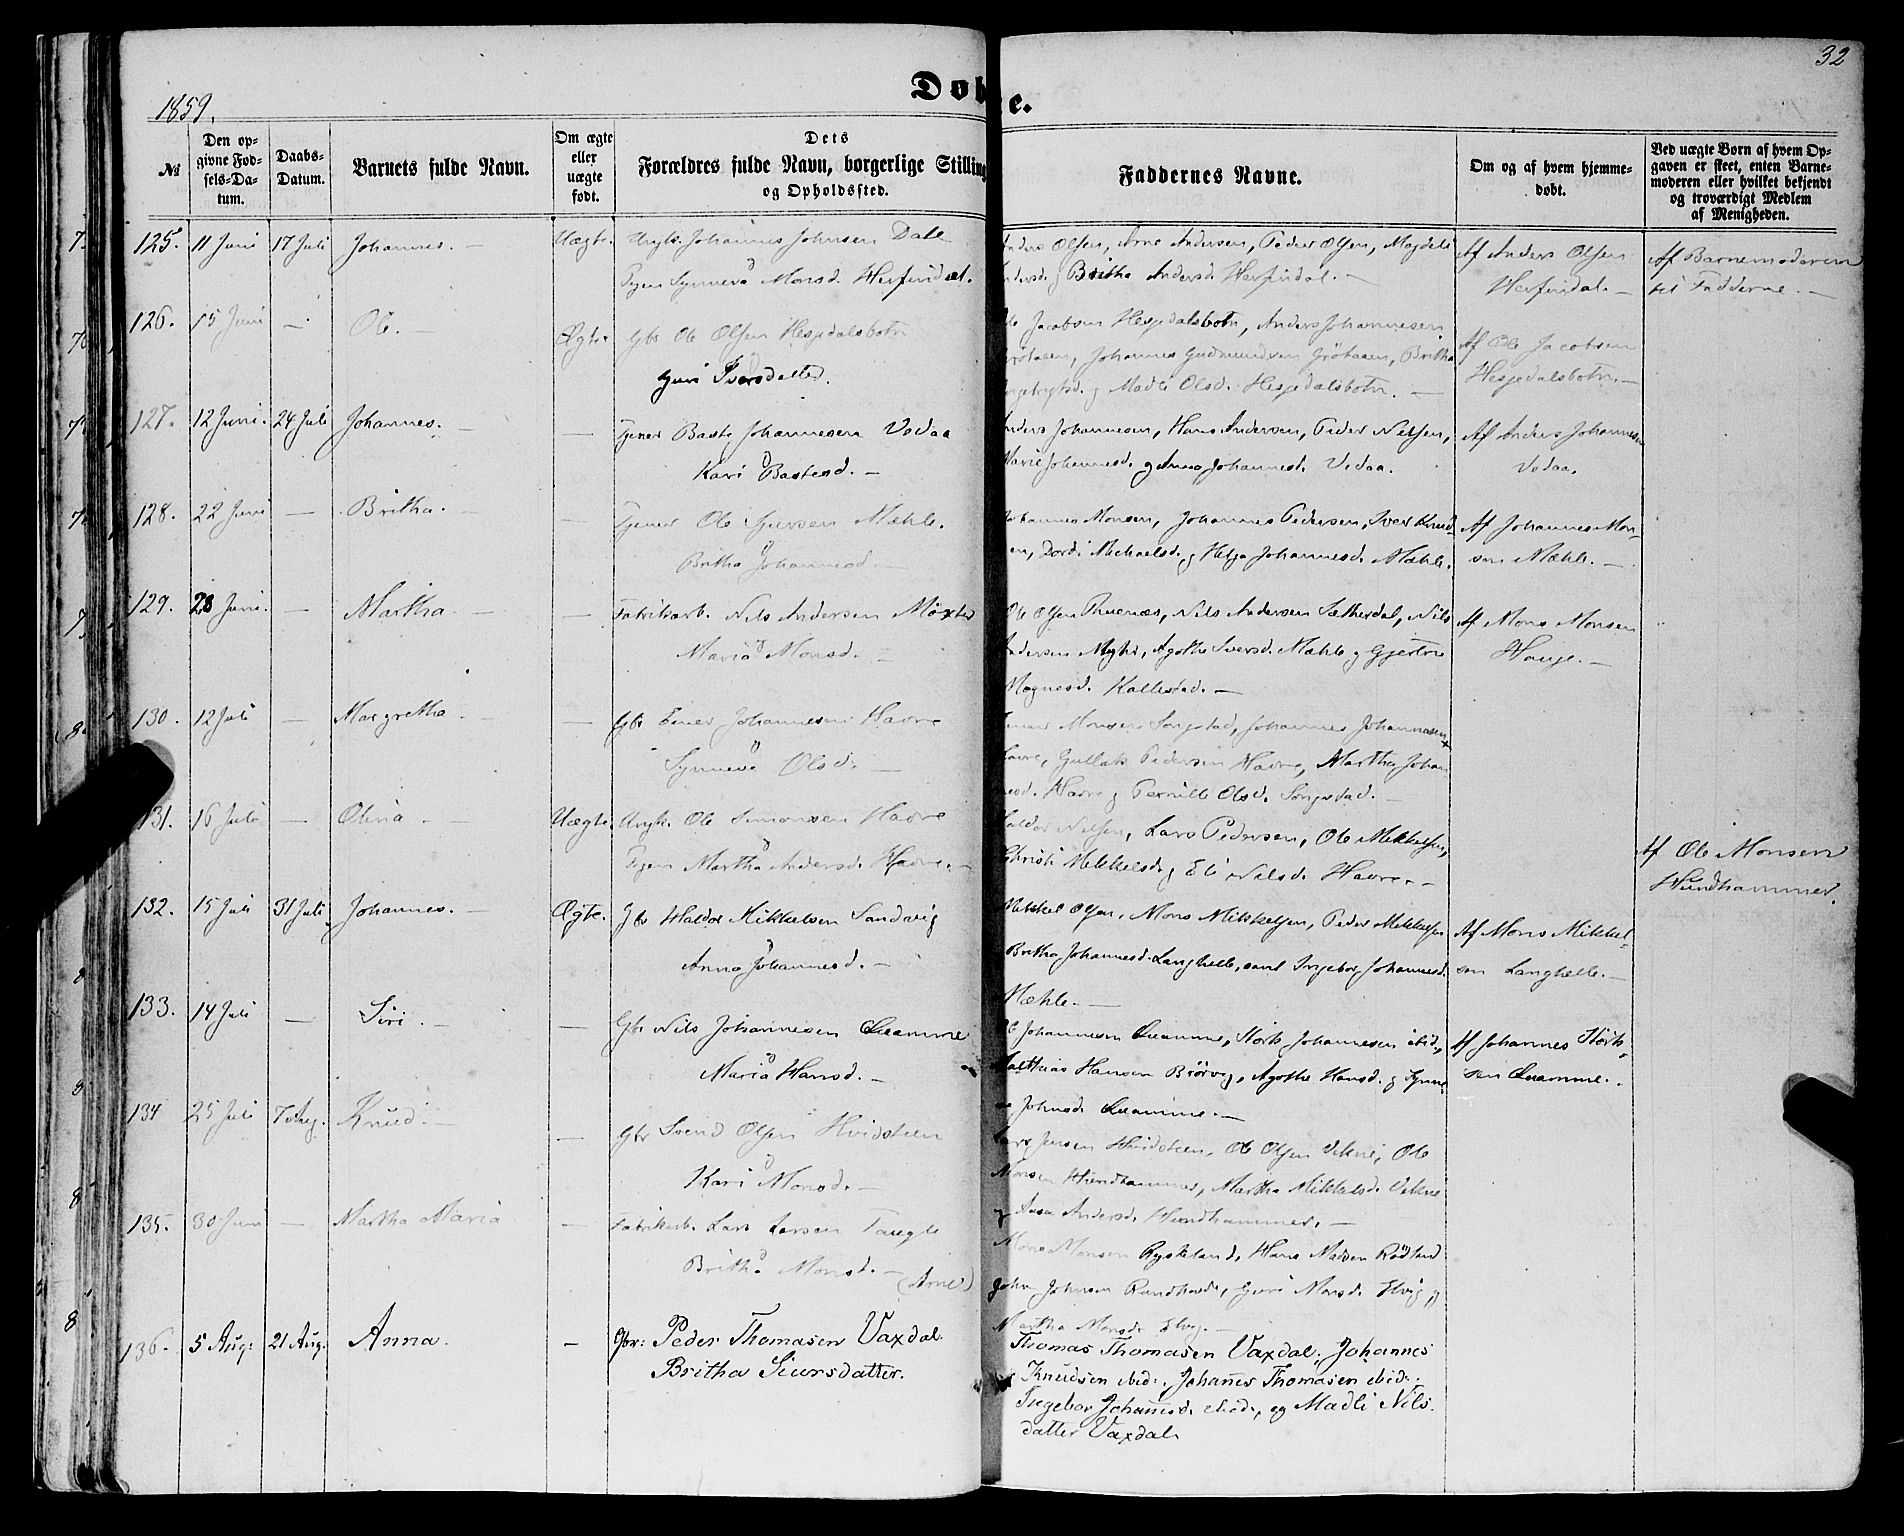 32
Døbte.
1859.
№
Den op-
givne Fød-
sels-Da-
tum.
Daabs-
Datum.
Barnets fulde Navn.
Om ægte
eller
uægte
født.
Dets
Forældres fulde Navn, borgerlige Stilling
og Opholdssted.
Faddernes Navne.
Om og af hvem hjemme-
døbt.
Ved uægte Børn af hvem Op-
gaven er skeet, enten Barne-
moderen eller hvilket bekjendt
og troværdigt Medlem
af Menigheden.
125. 11 Juni 17 Juli Johannes. Uægte. Ungk. Johannes Johnsen Dale
Pigen Synneva Monsd. Herfindal.
Anders Olsen, Arne Andersen, Peder Olsen, Magdeli
Andersd. og Britha Andersd. Herfindal. —
Af Anders Olsen
Herfindal. —
Af Barnemoderen
til Fadderne. —
126. 15 Juni — Ole. — Ægte Gbr Ole Olsen Hespedalsbotn
Guri Iversdatter.
Ole Jacobsen Hespedalsbotn, Anders Johannesen
Grötaaen, Johannes Gudmundsen Grötaaen, Britha
og Madli Olsd. Hespedalsbotn. —
Af Ole Jacobsen
Hespedalsbotn. —
127. 12 Juni. 24 Juli Johannes. — Tjener Baste Johannesen Vedaa
Kari Bastesd. —
Anders Johannesen, Hans Andersen, Peder Nilsen,
Marie Johannesd. og Anna Johannesd. Vedaa.
Af Anders Johannesen
Vedaa.
128. 22 Juni — Britha. — Tjener Ole Sjursen Mæhle.
Britha Johannesd. —
Johannes Monsen, Johannes Pedersen, Iver Knud-
sen, Dordi Michaelsd. og Helga Johannesd. Mæhle.
Af Johannes Mon-
sen Mæhle. —
129. 28 Juni. — Martha. — Fabrikarb. Nils Andersen Möxter
Maria Monsd. —
Ole Olsen Thuenæs, Nils Andersen Sætherdal, Nils
Andersen Myhre, Agathe Iversd. Mæhle og Gjertrue
Magnesd. Kallestad. —
Af Mons Monsen
Hauge. —
130. 12 Juli — Margretha. — Gbr Einer Johannesen Havre
Synneva Olsd. —
Einar Monsen Songstad, Johannes Johannesen
Havre, Gullak Pedersen Havre, Martha Johan
nesd. Havre og Pernille Olsd. Songstad. —
131. 16 Juli — Olina. — Uægte. Ungk. Ole Simonsen Havre
Pigen Martha Andersd. Havre. —
Haldor Nilsen, Lars Pedersen, Ole Mikkelsen,
Christi Mikkelsd. og Eli Nilsd. Havre. —
Af Ole Monsen
Hundhammer.
132. 15 Juli 31 Juli Johannes. — Ægte. Gbr Haldor Mikkelsen Sandvig
Anna Johannesd. —
Mikkel Olsen, Mons Mikkelsen, Peder Mikkelsen
Britha Johannesd. Langhelle, samt Ingebor Johannesd.
Mæhle. —
Af Mons Mikkel-
sen Langhelle. —
133. 14 Juli — Siri. — Gbr Nils Johannesen Quamme
Maria Hansd. —
Ole Johannesen Quamme, Störk Johannesen ibid.,
Matthias Hansen Brörvig, Agathe Hansd. og Synne-
va Johnsd. Quamme. —
Af Johannes Störk-
sen Quamme. —
134 25 Juli 7 Aug. Knud. — Gbr Svend Olsen Hvidsteen
Kari Monsd. —
Lars Jensen Hvidsteen, Ole Olsen Vikne, Ole
Monsen Hundhammer, Martha Mikkelsd. Vikne
og Anna Andersd. Hundhammer. —
135. 30 Juni — Martha Maria — Fabrikarb. Lars Larsen Taugle
Britha Monsd. — (Arne)
Mons Monsen Ryskeland, Hans Madsen Rödland
John Johnsen Rundhovde, Guri Monsd. Elvig og
Martha Monsd. Elvig. —
136. 5 Aug: 21 Aug. Anna. — Gbr: Peder Thomasen Vaxdal.
Britha Siursdatter.
Thomas Thomasen Vaxdal, Johannes
Knudsen ibid:, Johanes Thomasen ibid:
Ingebor Johanesd. ibid:, og Madli Nils-
datter Vaxdal.